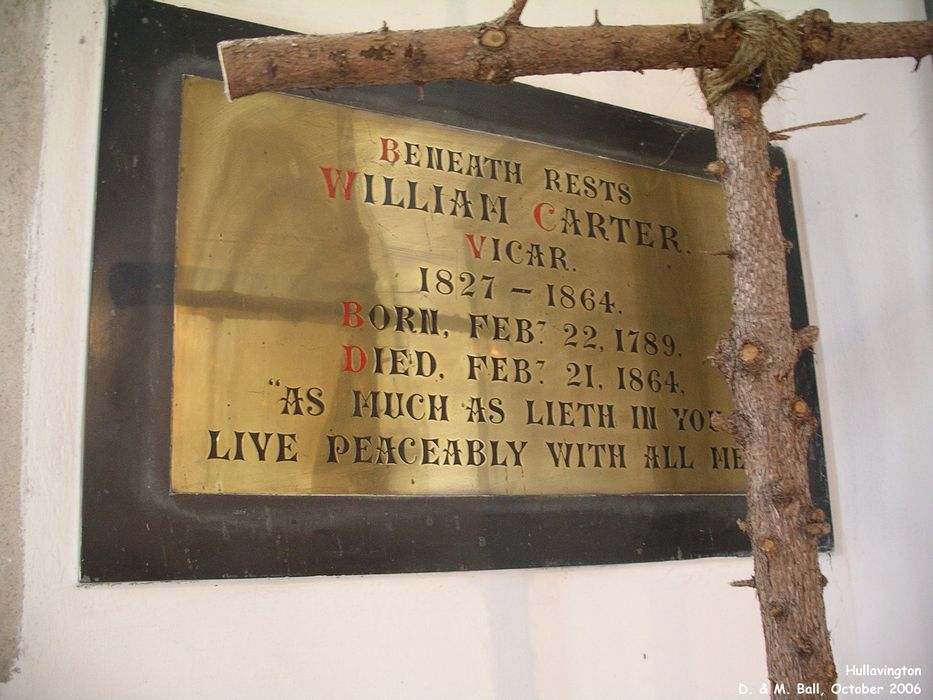 BENEATH RESTS
WILLIAM CARTER.
VICAR.
1827 – 1864.
BORN, FEBY. 22, 1789,
DIED, FEBY. 21, 1864,
"AS MUCH AS LIETH IN
LIVE PEACEABLY WITH ALL
Hullavington
D. & M. Ball, October 2006